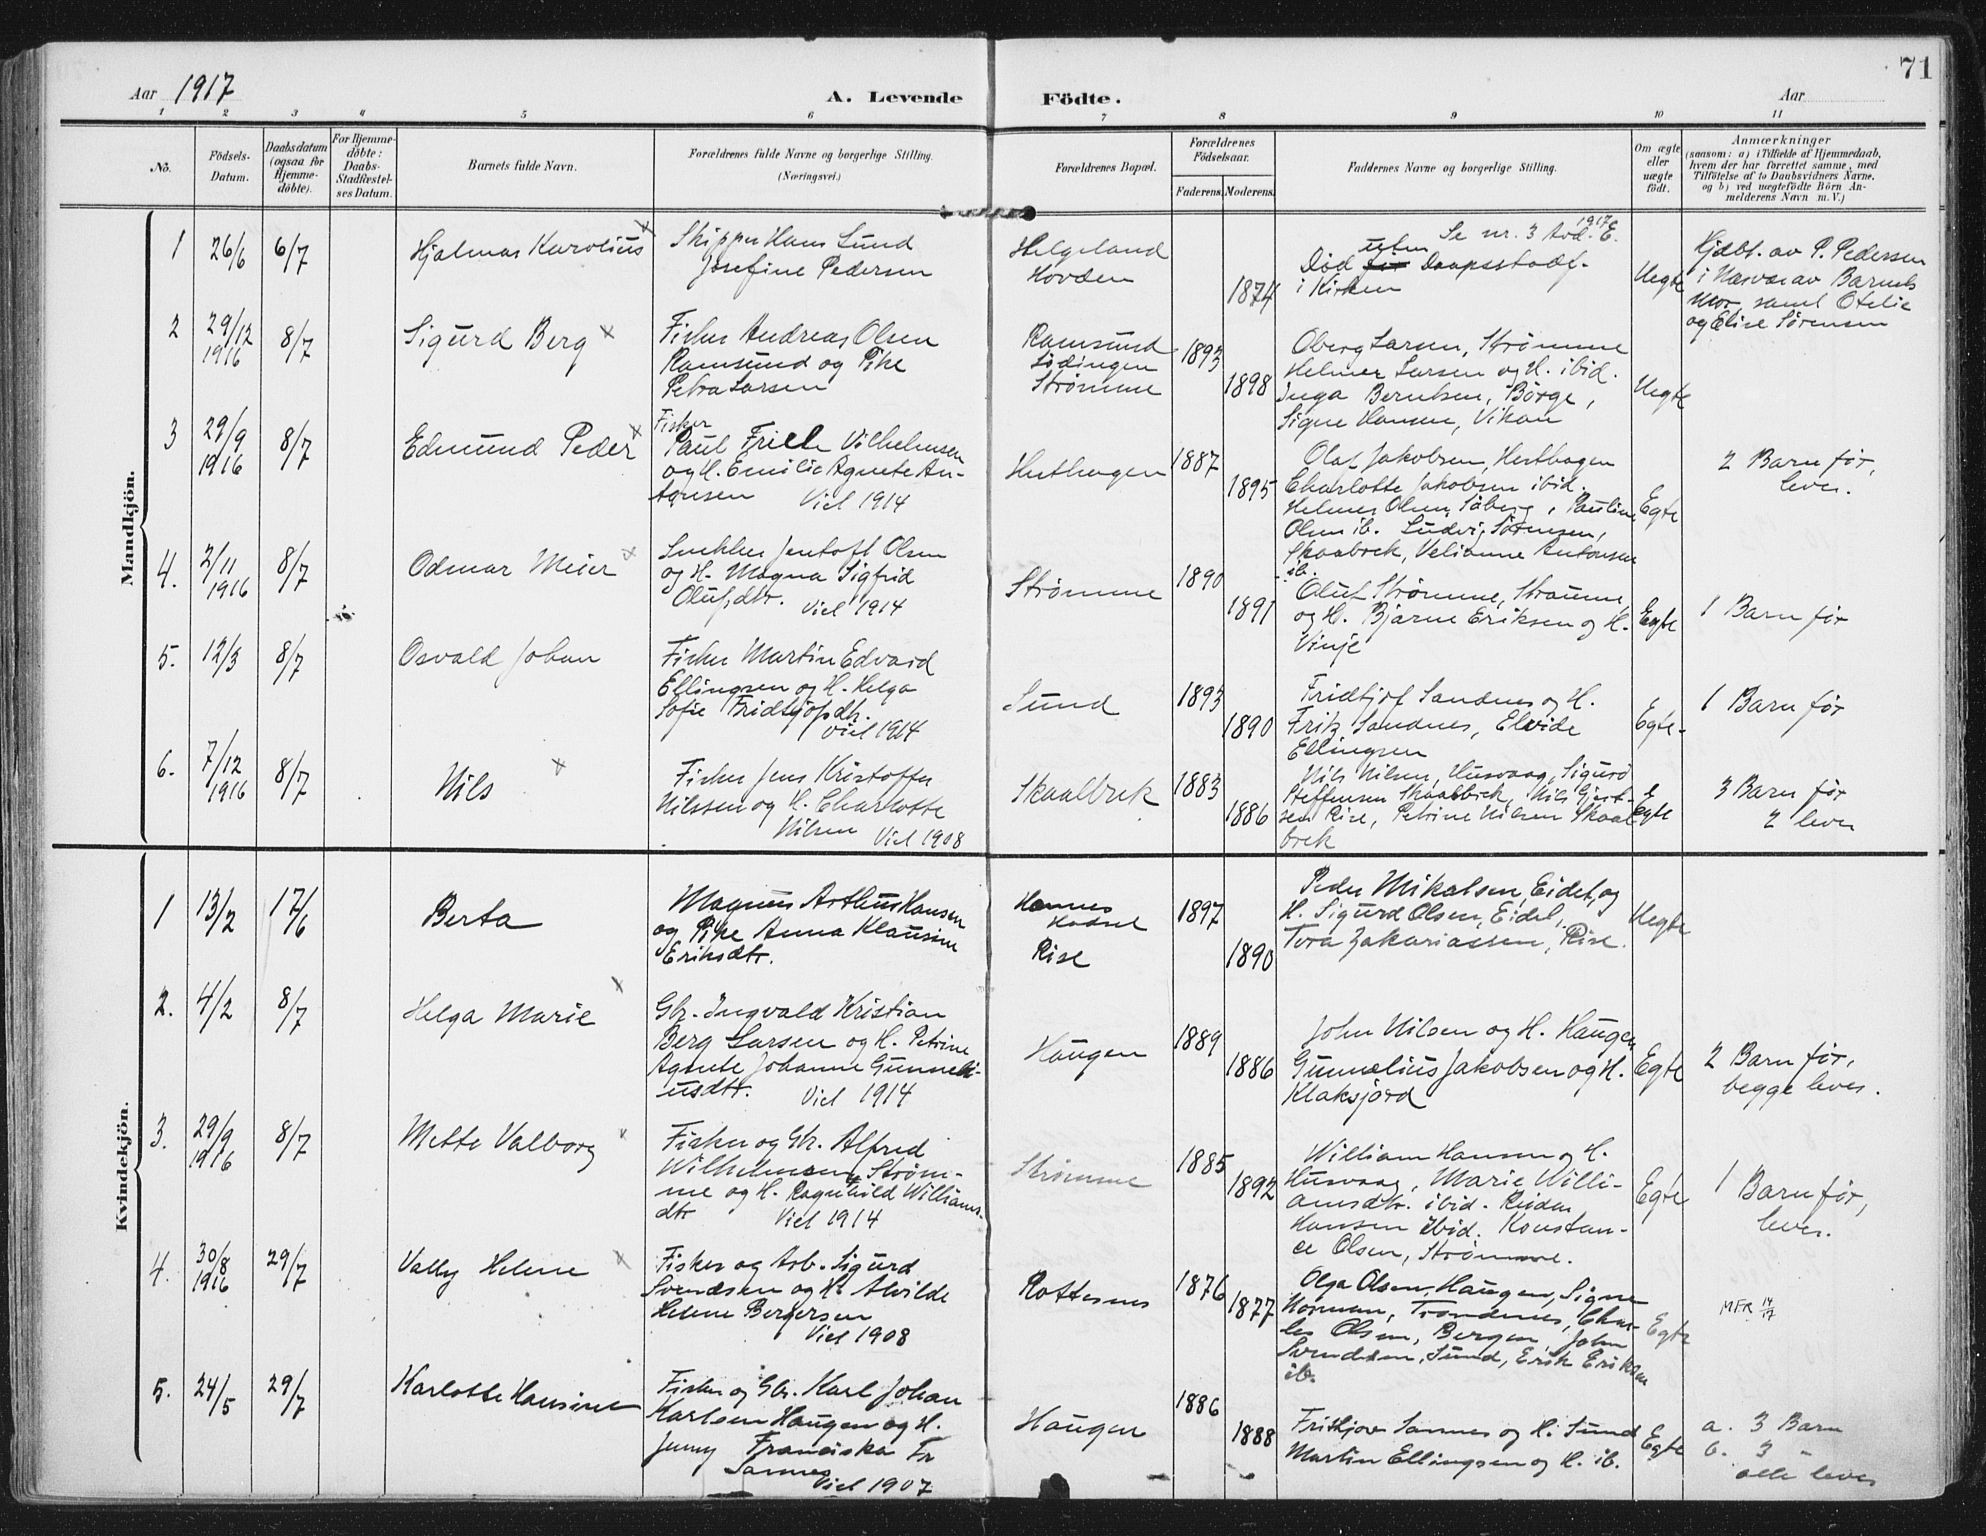 71
Aar 1917
A. Levende Födte.
Aar
1 2 3 4 5 6 7 8 9 10 11
No.
Födsels-Datum.
Daabsdatum (ogsaa for Hjemme-döbte).
For Hjemme-döbte: Daabs-Stadfæstelses Datum.
Barnets fulde Navn.
Forældrenes fulde Navne og borgerlige Stilling.
(Næringsvei.)
Forældrenes Bopæl.
Forældrenes Födselsaar.
Faderens. Moderens.
Faddernes Navne og borgerlige Stilling.
Om ægte eller uægte födt.
Anmærkninger
(saasom: a) i Tilfælde af Hjemmedaab,
hvem der har forrettet samme, med
Tilföielse af to Daabsvidners Navne,
og b) ved uægtefödte Börn An-
melderens Navn m. V.)
Mandkjön.
1 26/6 6/7 Hjalmar Karolius
Skipper Hans Lund
Josefine Pedersen
Helgeland
Hovden
1874
Se nr. 3 Avd. E. 1917
Død uten for Daapsstadf.
i Kirken
Uegte
Hjdbt. av P. Pedersen
i Nærvær av Barnets
Mor, samt Otelie
og Elise Sørensen
2 29/12 1916 8/7 Sigurd Berg
Fisker Andreas Olsen
Ramsund og Pike
Petra Larsen
Ramsund
Lødingen
Strømme
1893
1898
Oberg Larsen, Strømme
Helmer Larsen og H. ibid.
Inga Berntsen, Børge,
Signe Hansen, Vikan
Uegte
3 29/9 1916 8/7 Edmund Peder
Fisker
Paul Friele Vilhelmsen
og H. Emilie Agnete An-
tonsen Viel 1914
Hesthagen
1887
1895
Olaf Jakobsen, Hesthagen
Charlotte Jakobsen ibid.
Helmer Olsen, Søberg, Pauline
Olsen ib. Ludvig Sørensen,
Skaabrek, Velianne Antonsen
ib.
Egte
2 Barn før,
lever.
4. 2/11 1916 8/7 Odmar Meier
Snekker Jentoft Olsen
og H. Magna Sigfrid
Olufsdtr. Viel 1914
Strømme
1890
1891
Oluf Strømme, Straume
og H. Bjarne Eriksen og H.
Vinje
Egte
1 Barn før
5. 12/3 8/7 Osvald Johan
Fisker Martin Edvard
Ellingsen og H. Helga
Sofie Fridtjofsdtr.
Viel 1914
Sund
1893
1890
Fridtjof Sandnes og H.
Fritz Sandnes, Elvide
Ellingsen
Egte.
1 Barn før
6. 7/12 1916 8/7 Nils
Fisker Jens Kristoffer
Nilssen og H. Charlotte
Nilsen Viel 1908
Skaalbrek
1883
1886
Nils Nilsen, Husvaag, Sigurd
Steffensen Skaalbrek, Nils Gjert-
sen Rise, Petrine Nilsen Skaal
brek
Egte
3 Barn før
2 lever
Kvindekjön.
1 13/2 17/6 Berta
Magnus Arthur Hansen
og Pike Anna Klausine
Eriksdtr.
Hannes
Hadsel
Rise
1897
1890
Peder Mikalsen, Eidet, og
H. Sigurd Olsen, Eidet,
Tora Zakariassen, Rise.
Uegte
2. 4/2 8/7 Helga Marie
Gbr. Ingvald Kristian
Berg Larsen og H. Petrine
Agnete Johanne Gunneli-
usdtr. Viel 1914
Haugen
1889
1886
John Nilsen og H. Haugen
Gunnelius Jakobsen og H.
Klaksjord
Egte
2 Barn før,
begge lever.
3. 29/9 1916 8/7 Mette Valborg
Fisker og Gbr. Alfred
Wilhelmsen Strøm-
me og H. Ragnhild Williams-
dtr Viel 1914
Strømme
1885
1892
William Hansen og H.
Husvaag, Marie Willi-
amsdtr. ibid. Reidar
Hansen ibid. Konstan-
ce Olsen, Strømme.
Egte
1 Barn før,
lever.
4. 30/8 1916 29/7 Vally Helene
Fisker og Arb. Sigurd
Svendsen og H. Alvilde
Helene Bergersen
Viel 1908
Rottesnes
1876
1877
Olga Olsen, Haugen, Signe
Norman, Trondenes, Char-
les Olsen, Bergen, John
Svendsen, Sund, Erik Eriksen
ib.
Egte
MFR 14/17
5. 24/5 29/7 Karlotte Hansine
Fisker og Gbr. Karl Johan
Karlsen Haugen og H.
Jenny Franciska Fr
Sannes
Viel 1907
Haugen
1886
1888
Fritjov Sannes og H. Sund
Martin Ellingsen og H. ib.
Egte
a. 3 Barn
b. 3 "
alle lever